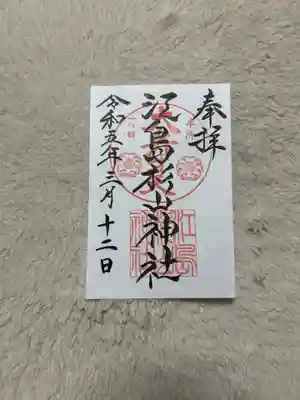 奉拝
江島杉山神社
令和五年三月十二日